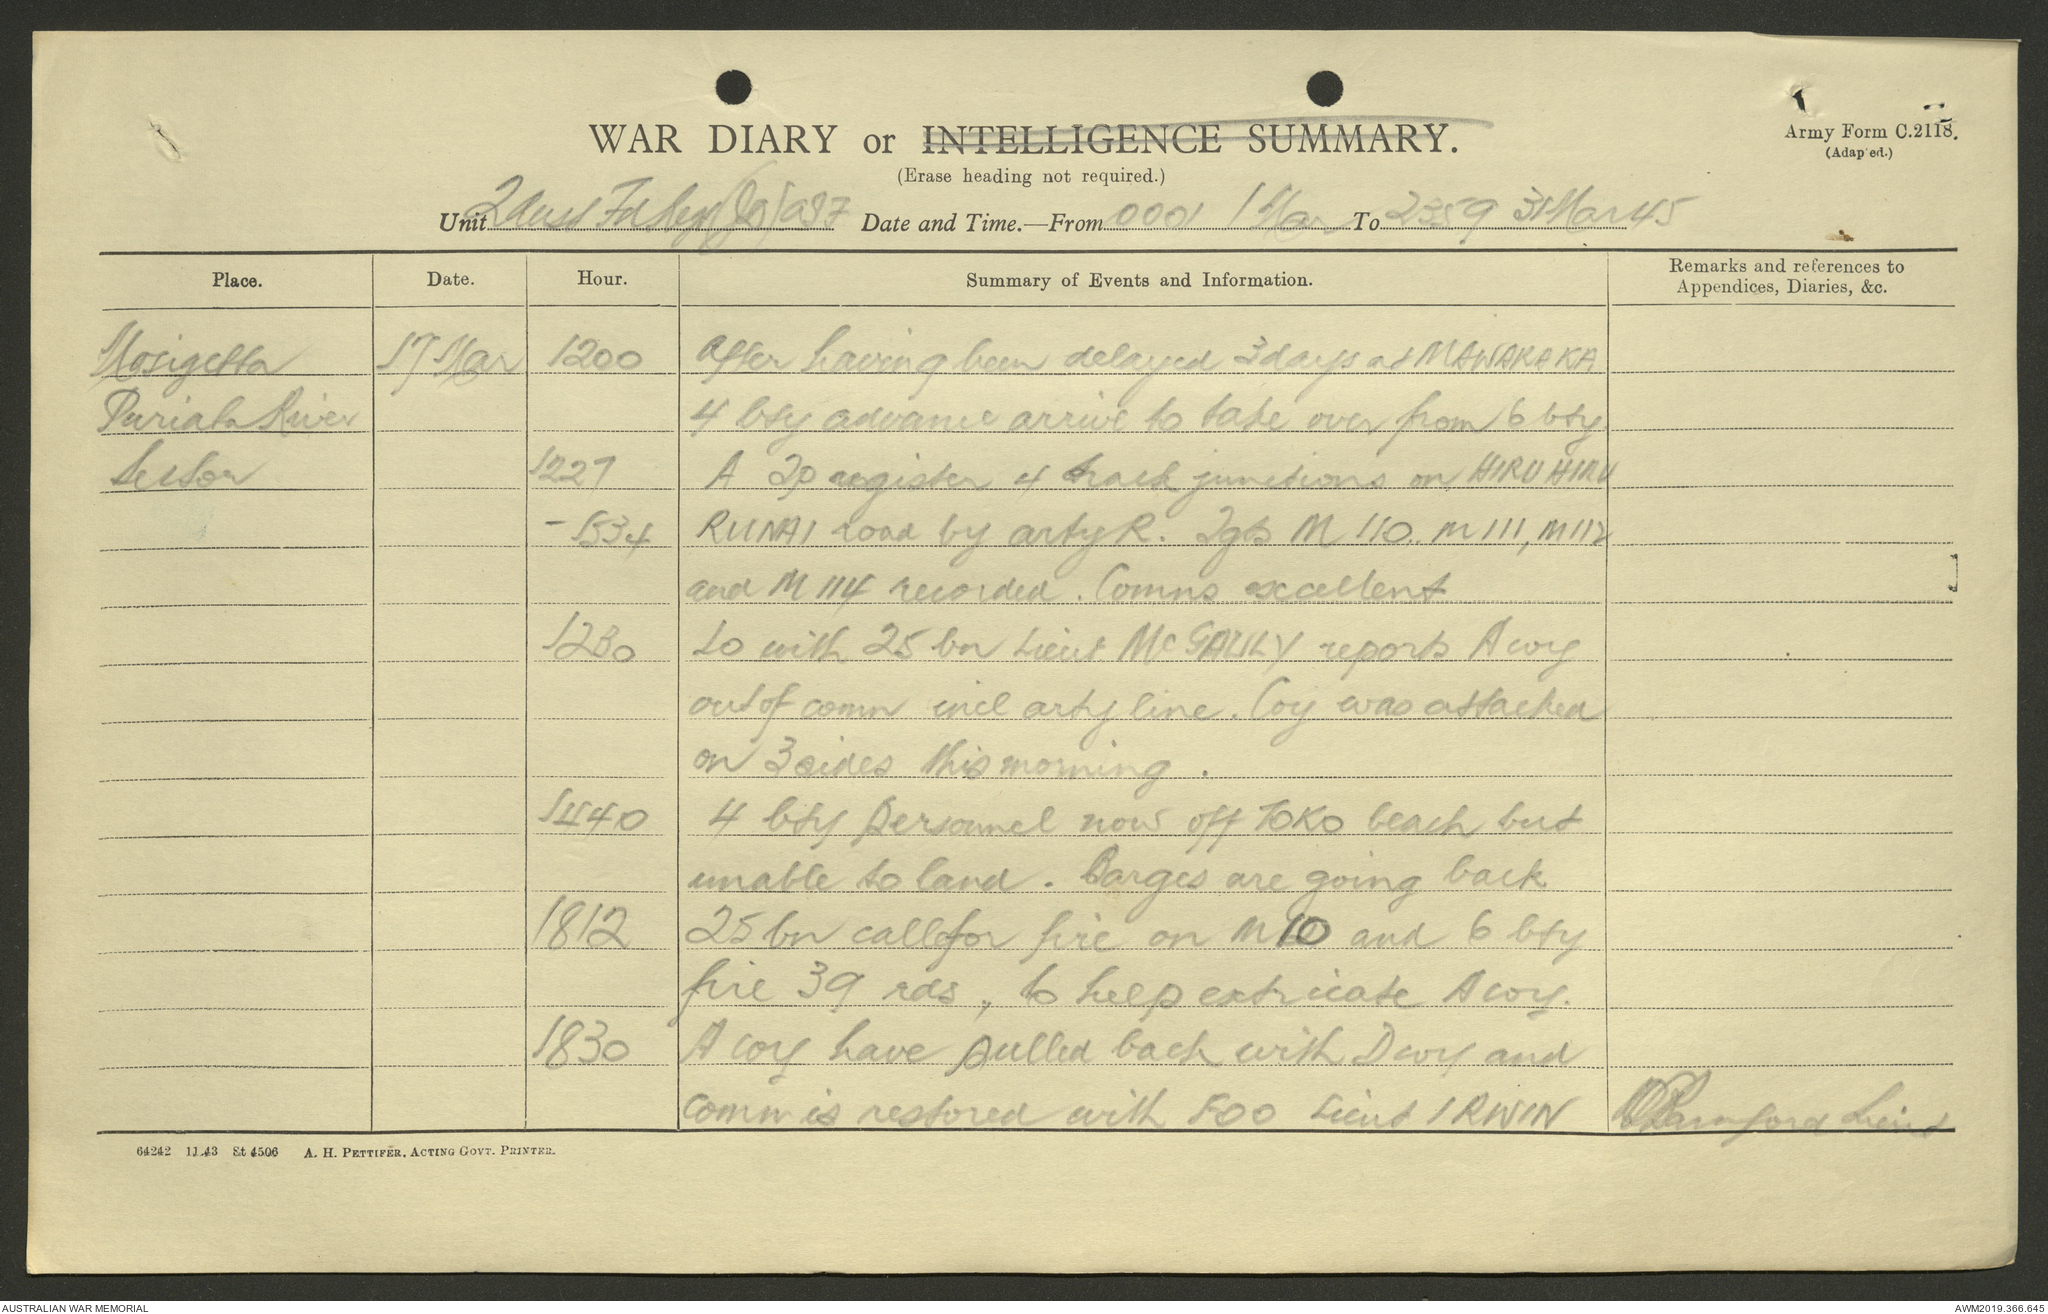 WAR DIARY or INTELLIGENCE SUMMARY.
Army Form C.2118.
(Adapted.)
(Erase heading not required.)
Unit 2 Aust Fd Regt Date and Time.—From 0001 1 Mar To 2359 31 Mar 45
Place. Date. Hour. Summary of Events and Information. Remarks and references to Appendices, Diaries, &c.
Mosigetta 17 Mar 1200 After having been delayed 3 days at MAWARAKA
Puriata River 4 bty advance arrive to take over from 6 bty
Sector 1227 A Tp register 4 track junctions on HIRU HIRU
- 1534 RUNAI road by arty R. Tgts M 110. M 111, M 112
and M 114 recorded. Comns excellent
1230 LO with 25 bn Lieut McGAULY reports A coy
out of comn incl arty line. Coy was attacked
on 3 sides this morning.
1440 4 bty personnel now off TOKO beach but
unable to land. Barges are going back
1812 25 bn call for fire on M 10 and 6 bty
fire 39 rds, to help extricate A coy.
1830 A coy have pulled back with D coy and
comm is restored with FOO Lieut IRWIN
Bamford Lieut
64242 11.43 St 4506 A. H. PETTIFER, ACTING GOVT. PRINTER.
AUSTRALIAN WAR MEMORIAL
AWM2019.366.645